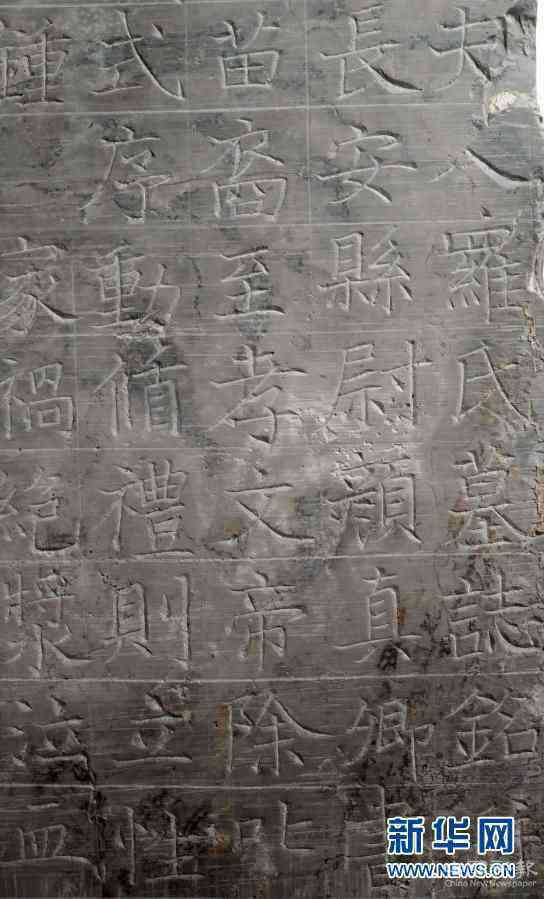 夫人羅氏墓誌銘
長安縣尉顏真卿書
苗裔至孝文帝除叱
式序動循禮則立性
鍾家禍絕漿泣血
新华网
WWW.NEWS.CN
China News Newspaper